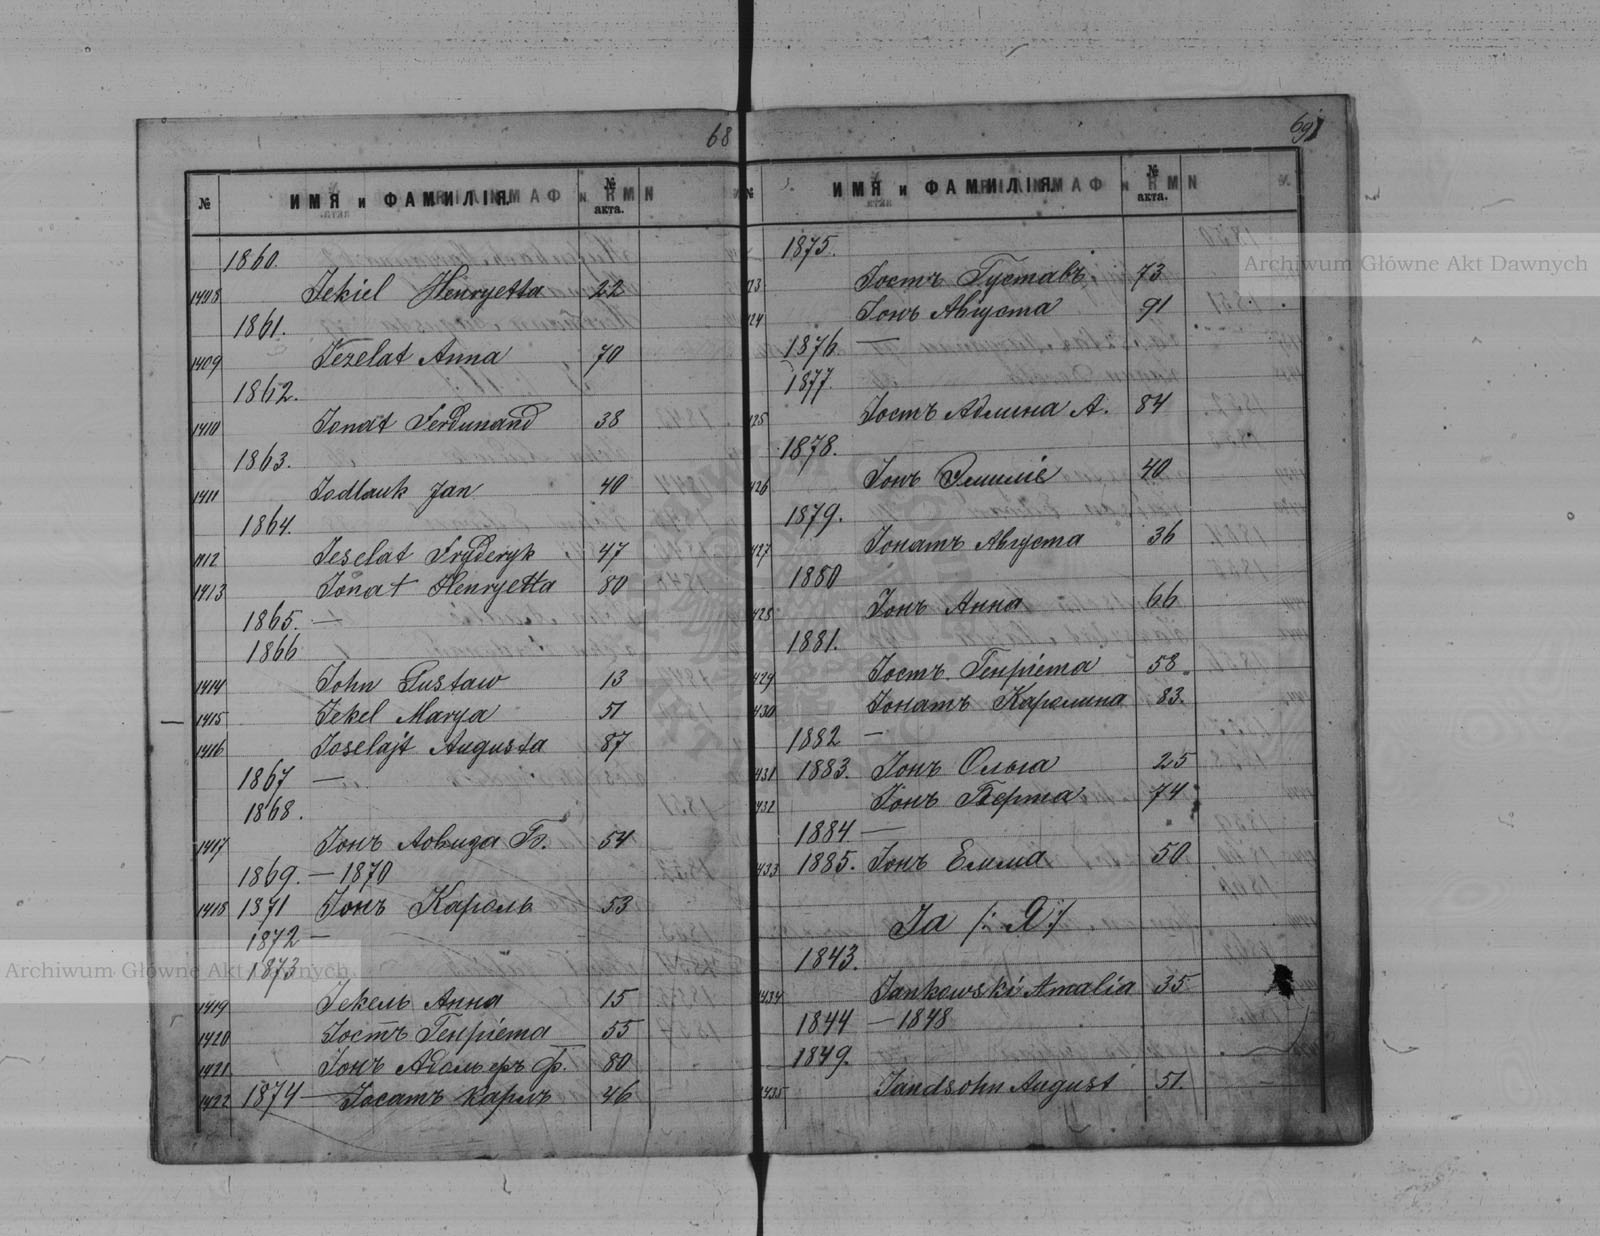 68
№ ИМЯ и ФАМИЛІЯ. № акта.
1860.
1408 Jekiel Henryetta 22
1861.
1409 Jezelat Anna 70
1862.
1410 Jonat Ferdunand 38
1863.
1411 Jodlauk Jan 40
1864.
1412 Jeselat Fryderyk 47
1413 Jonat Henryetta 80
1865. —
1866
1414 John Gustaw 13
1415 Jekel Marya 51
1416 Joselajt Augusta 87
1867 —
1868.
1417 Іонъ Ловиза Б. 54
1869. — 1870
1418 1871 Іонъ Кароль 53
1872 —
1873
1419 Іекель Анна 15
1420 Іостъ Генріета 55
1421 Іонъ Адольфъ Ф. 80
1422 1874 — Іосатъ Карлъ 46
69
№ ИМЯ и ФАМИЛІЯ. № акта.
1875.
23 Іостъ Густавъ 73
24 Іонъ Августа 91
1876 —
1877.
425 Іостъ Адлина А. 84
1878.
426 Іонъ Эмиліе 40
1879.
427 Іонатъ Августа 36
1880
428 Іонъ Анна 66
1881.
429 Іостъ Генріета 58
430 Іонатъ Каролина 83.
1882 —
431 1883. Іонъ Ольга 25
432 Іонъ Берта 74
1884 —
433 1885. Іонъ Емма 50
Ja /: Я :/
1843.
434 Jankowski Amalia 35
1844 — 1848
1849.
435 Jandsohn August 51.
Archiwum Główne Akt Dawnych
Archiwum Główne Akt Dawnych